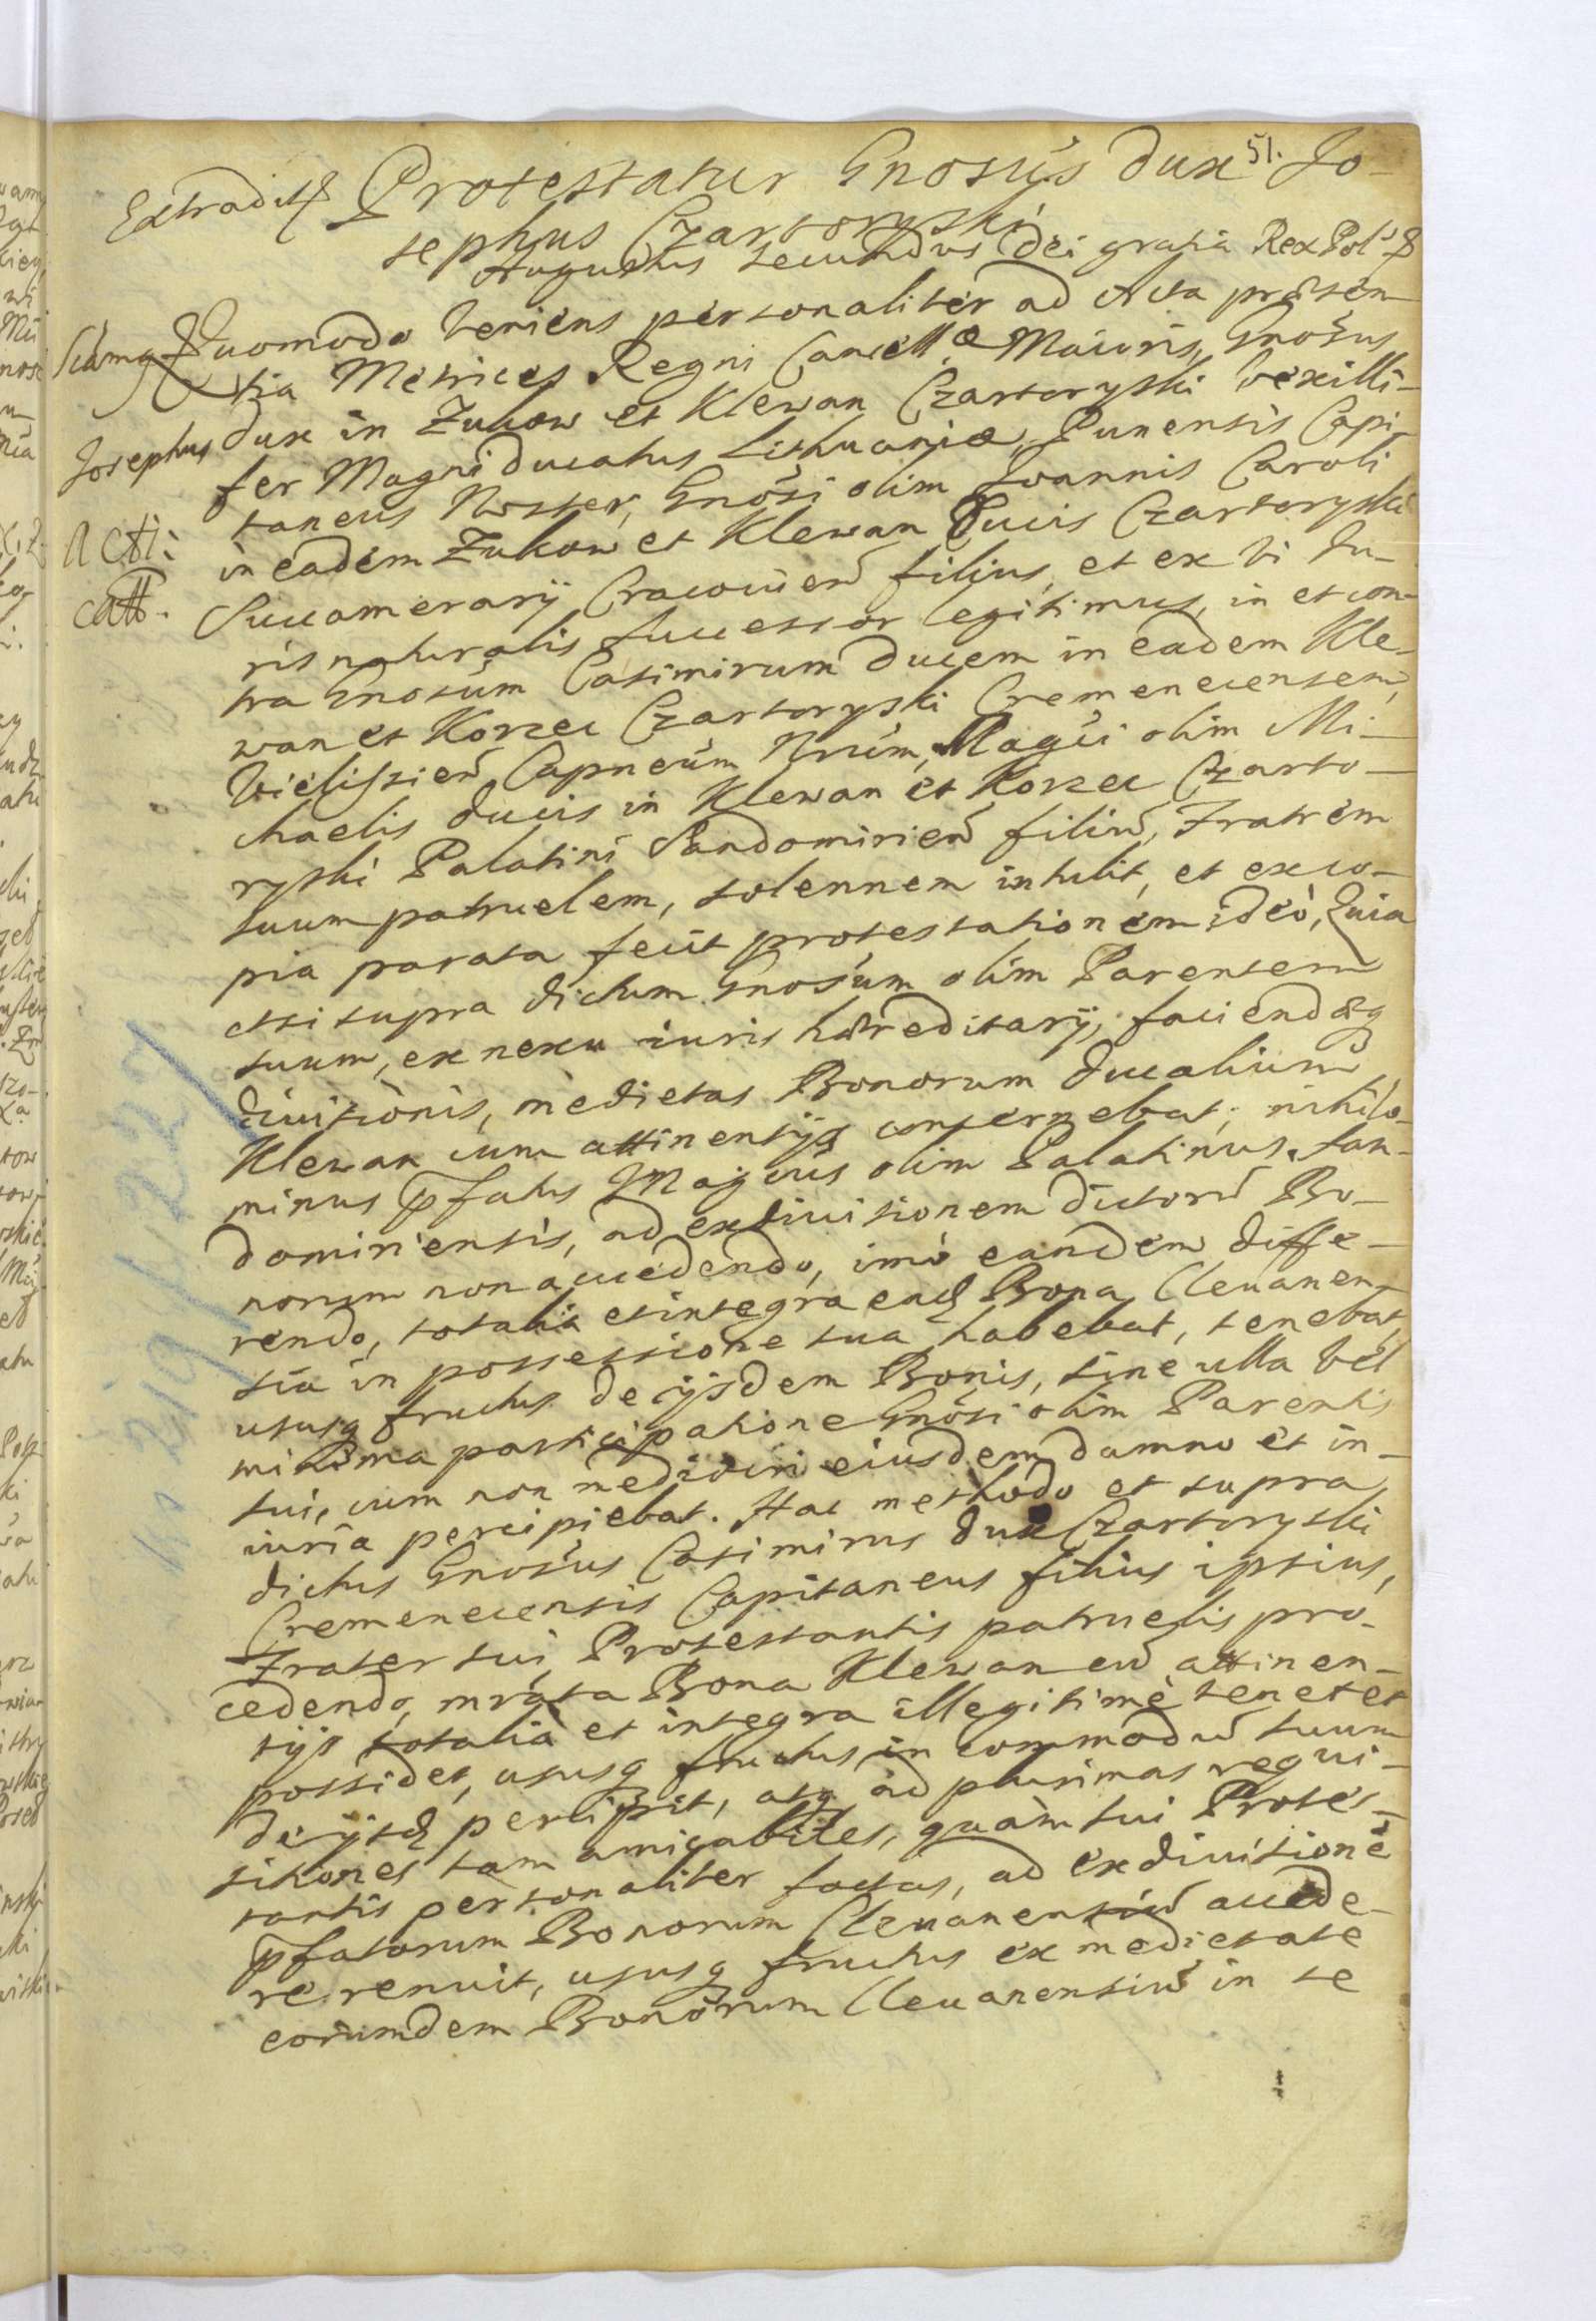 51.
Extradit Protestatur Gnosus dux Jo-
sephus Czartoryski
Augustus Secundus Dei gratia Rex Pol
Quomodo veniens personaliter ad Acta præsen-
tia Metrices Regni Cancellæ Maioris, Gnosus
Josephus dux in Zukow et Klewan Czartoryski vexilli-
fer Magni ducatus Lithuaniæ, Punensis Capi-
taneus Noster, Gnosi olim Joannis Caroli
Acti: in eadem Zukow et Klewan Ducis Czartoryski
Succamerarij Cracovien filius, et ex vi Ju-
ris naturalis successor legitimus, in et con-
tra Gnosum Casimirum ducem in eadem Kle-
wan et Korzec Czartoryski Cremenecensem,
Wieliszien Capneum Nrum, Magci olim Mi-
chaelis ducis in Klewan et Korzec Czarto-
ryski Palatini Sandomirien filiu, Fratrem
suum patruelem, solennem intulit, et ex co-
pia parata fecit protestationem ideo, Quia
etsi supra dictum Gnosum olim Parentem
suum, ex nexu iuris hæreditarij, faciendæq
divisionis, medietas Bonorum ducalium
Klewan cum attinentijs concernebat; nihilo-
minus pfatus Magcus olim Palatinus San-
domiriensis, ad exdivisionem dictoru Bo-
norum non accedendo, imo eandem diffe-
rendo, totalia et integra ead Bona Clevanen-
sia in possessione sua habebat, tenebat,
ususq fructus de ijsdem Bonis, sine ulla vel
minima participatione Gnosi olim Parentis
sui, cum non mediocri eiusdem damno et in-
iuria percipiebat. Hac methodo et supra
dictus Gnosus Casimirus dux Czartoryski
Cremenecensis Capitaneus filius ipsius,
Frater sui Protestantis patruelis pro-
cedendo, mrgta Bona Klewan cu attinen-
tijs totalia et integra illegitimè tenet et
possidet, ususq fructus in commodu suum
de ijsd percipit, atq ad plurimas requi-
sitiones tam amicabiles, quàm sui Protes-
tantis personaliter factas, ad exdivisione
pfatorum Bonorum Clevanensiu accede-
re renuit, ususq fructus ex medietate
eorumdem Bonorum Clevanensiu in se